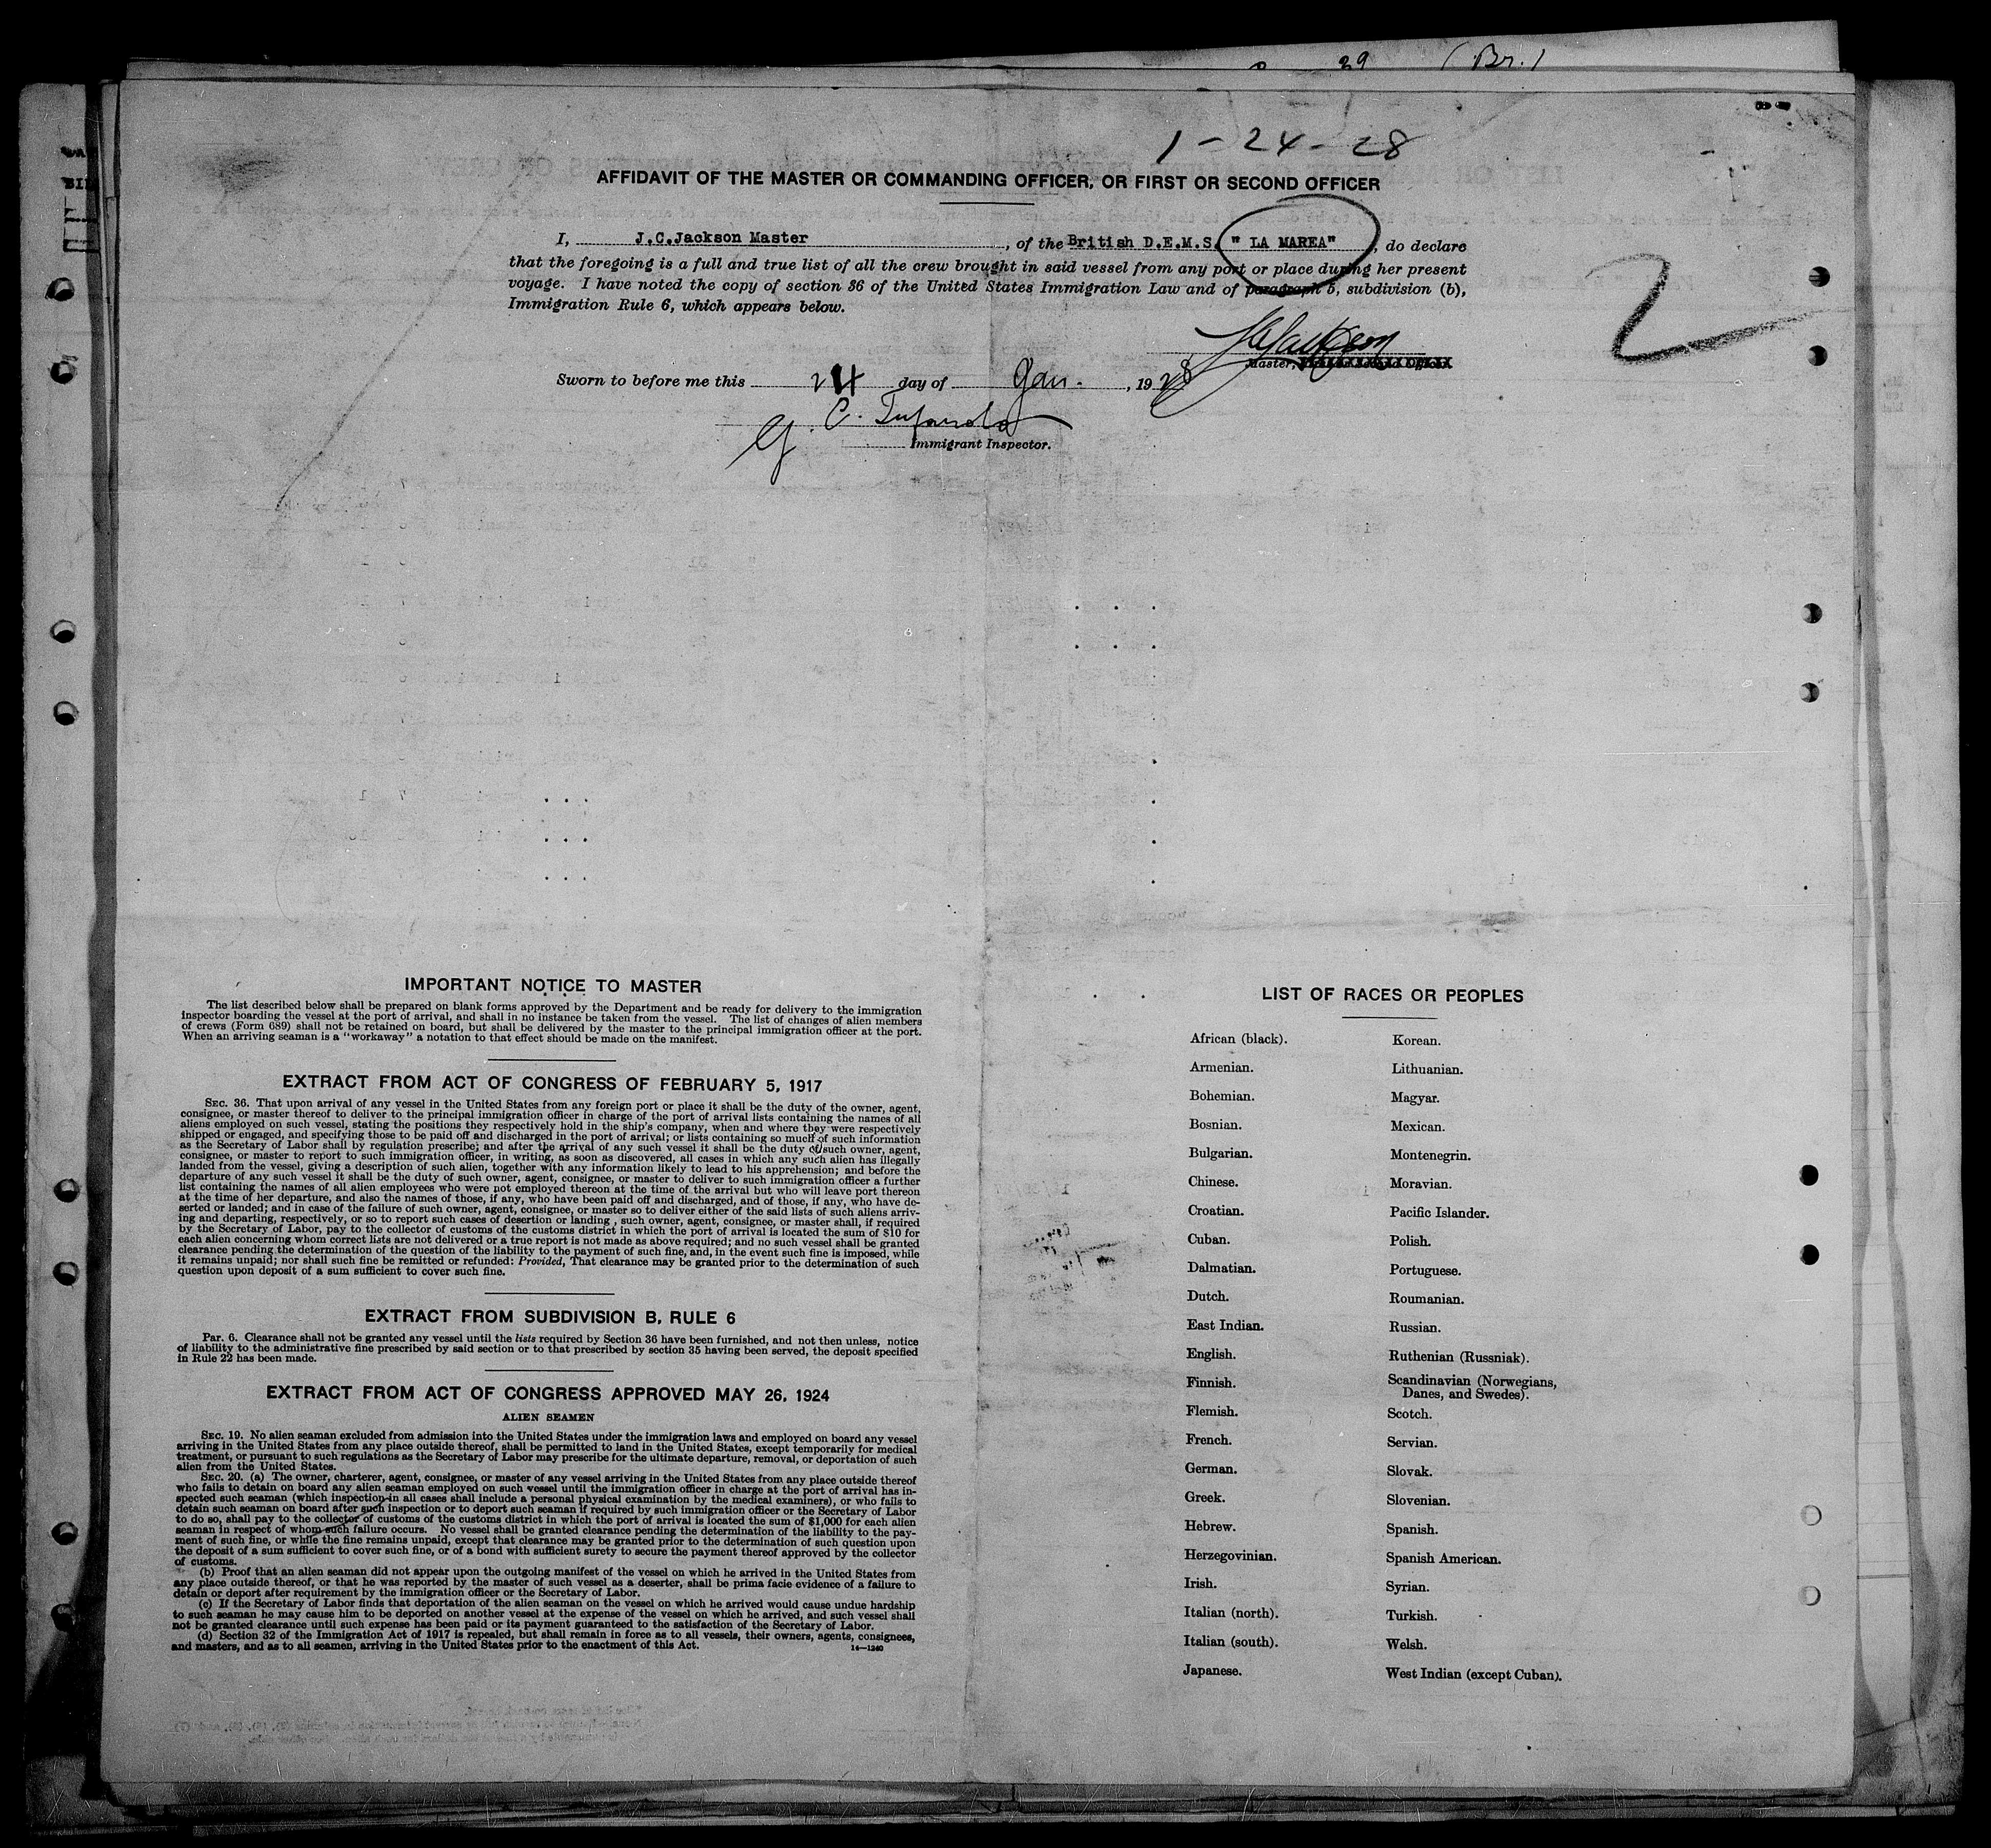 29 (Br.)
1-24-28
AFFIDAVIT OF THE MASTER OR COMMANDING OFFICER, OR FIRST OR SECOND OFFICER
I, J.C.Jackson Master, of the British D.E.M.S. " LA MAREA", do declare
that the foregoing is a full and true list of all the crew brought in said vessel from any port or place during her present
voyage. I have noted the copy of section 36 of the United States Immigration Law and of paragraph 5, subdivision (b),
Immigration Rule 6, which appears below.
2
JCJackson
Master,
Sworn to before me this 24 day of Jan., 1928
G. C.
Immigrant Inspector.
IMPORTANT NOTICE TO MASTER
The list described below shall be prepared on blank forms approved by the Department and be ready for delivery to the immigration
inspector boarding the vessel at the port of arrival, and shall in no instance be taken from the vessel. The list of changes of alien members
of crews (Form 689) shall not be retained on board, but shall be delivered by the master to the principal immigration officer at the port.
When an arriving seaman is a "workaway" a notation to that effect should be made on the manifest.
EXTRACT FROM ACT OF CONGRESS OF FEBRUARY 5, 1917
SEC. 36. That upon arrival of any vessel in the United States from any foreign port or place it shall be the duty of the owner, agent,
consignee, or master thereof to deliver to the principal immigration officer in charge of the port of arrival lists containing the names of all
aliens employed on such vessel, stating the positions they respectively hold in the ship's company, when and where they were respectively
shipped or engaged, and specifying those to be paid off and discharged in the port of arrival; or lists containing so much of such information
as the Secretary of Labor shall by regulation prescribe; and after the arrival of any such vessel it shall be the duty of such owner, agent,
consignee, or master to report to such immigration officer, in writing, as soon as discovered, all cases in which any such alien has illegally
landed from the vessel, giving a description of such alien, together with any information likely to lead to his apprehension; and before the
departure of any such vessel it shall be the duty of such owner, agent, consignee, or master to deliver to such immigration officer a further
list containing the names of all alien employees who were not employed thereon at the time of the arrival but who will leave port thereon
at the time of her departure, and also the names of those, if any, who have been paid off and discharged, and of those, if any, who have de-
serted or landed; and in case of the failure of such owner, agent, consignee, or master so to deliver either of the said lists of such aliens arriv-
ing and departing, respectively, or so to report such cases of desertion or landing , such owner, agent, consignee, or master shall, if required
by the Secretary of Labor, pay to the collector of customs of the customs district in which the port of arrival is located the sum of $10 for
each alien concerning whom correct lists are not delivered or a true report is not made as above required; and no such vessel shall be granted
clearance pending the determination of the question of the liability to the payment of such fine, and, in the event such fine is imposed, while
it remains unpaid; nor shall such fine be remitted or refunded: Provided, That clearance may be granted prior to the determination of such
question upon deposit of a sum sufficient to cover such fine.
EXTRACT FROM SUBDIVISION B, RULE 6
Par. 6. Clearance shall not be granted any vessel until the lists required by Section 36 have been furnished, and not then unless, notice
of liability to the administrative fine prescribed by said section or to that prescribed by section 35 having been served, the deposit specified
in Rule 22 has been made.
EXTRACT FROM ACT OF CONGRESS APPROVED MAY 26, 1924
ALIEN SEAMEN
SEC. 19. No alien seaman excluded from admission into the United States under the immigration laws and employed on board any vessel
arriving in the United States from any place outside thereof, shall be permitted to land in the United States, except temporarily for medical
treatment, or pursuant to such regulations as the Secretary of Labor may prescribe for the ultimate departure, removal, or deportation of such
alien from the United States.
SEC. 20. (a) The owner, charterer, agent, consignee, or master of any vessel arriving in the United States from any place outside thereof
who fails to detain on board any alien seaman employed on such vessel until the immigration officer in charge at the port of arrival has in-
spected such seaman (which inspection in all cases shall include a personal physical examination by the medical examiners), or who fails to
detain such seaman on board after such inspection or to deport such seaman if required by such immigration officer or the Secretary of Labor
to do so, shall pay to the collector of customs of the customs district in which the port of arrival is located the sum of $1,000 for each alien
seaman in respect of whom such failure occurs. No vessel shall be granted clearance pending the determination of the liability to the pay-
ment of such fine, or while the fine remains unpaid, except that clearance may be granted prior to the determination of such question upon
the deposit of a sum sufficient to cover such fine, or of a bond with sufficient surety to secure the payment thereof approved by the collector
of customs.
(b) Proof that an alien seaman did not appear upon the outgoing manifest of the vessel on which he arrived in the United States from
any place outside thereof, or that he was reported by the master of such vessel as a deserter, shall be prima facie evidence of a failure to
detain or deport after requirement by the immigration officer or the Secretary of Labor.
(c) If the Secretary of Labor finds that deportation of the alien seaman on the vessel on which he arrived would cause undue hardship
to such seaman he may cause him to be deported on another vessel at the expense of the vessel on which he arrived, and such vessel shall
not be granted clearance until such expense has been paid or its payment guaranteed to the satisfaction of the Secretary of Labor.
(d) Section 32 of the Immigration Act of 1917 is repealed, but shall remain in force as to all vessels, their owners, agents, consignees,
and masters, and as to all seamen, arriving in the United States prior to the enactment of this Act.
14—1240
LIST OF RACES OR PEOPLES
African (black).
Armenian.
Bohemian.
Bosnian.
Bulgarian.
Chinese.
Croatian.
Cuban.
Dalmatian.
Dutch.
East Indian.
English.
Finnish.
Flemish.
French.
German.
Greek.
Hebrew.
Herzegovinian.
Irish.
Italian (north).
Italian (south).
Japanese.
Korean.
Lithuanian.
Magyar.
Mexican.
Montenegrin.
Moravian.
Pacific Islander.
Polish.
Portuguese.
Roumanian.
Russian.
Ruthenian (Russniak).
Scandinavian (Norwegians,
Danes, and Swedes).
Scotch.
Servian.
Slovak.
Slovenian.
Spanish.
Spanish American.
Syrian.
Turkish.
Welsh.
West Indian (except Cuban).